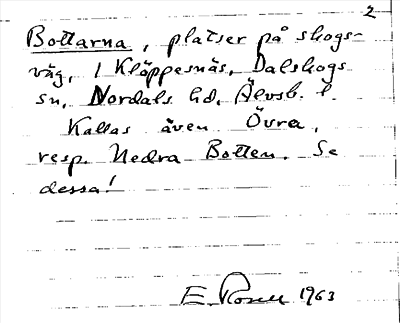 2
Bottarna, platser på skogs-
väg, i Kläppesnäs, Dalskogs
sn, Nordals hd, Älvsb. l.
Kallas även Övra,
resp. Nedra Botten. Se
dessa!
E. Rosell 1963